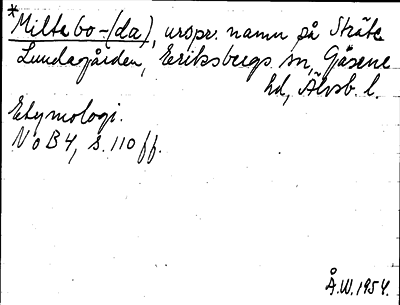 *Miltebo-(da), urspr. namn på Stråle
Lundagården, Eriksbergs sn, Gäsene
hd, Älvsb. l.
Etymologi.
NoB 4, s. 110 ff.
Å.W. 1954.